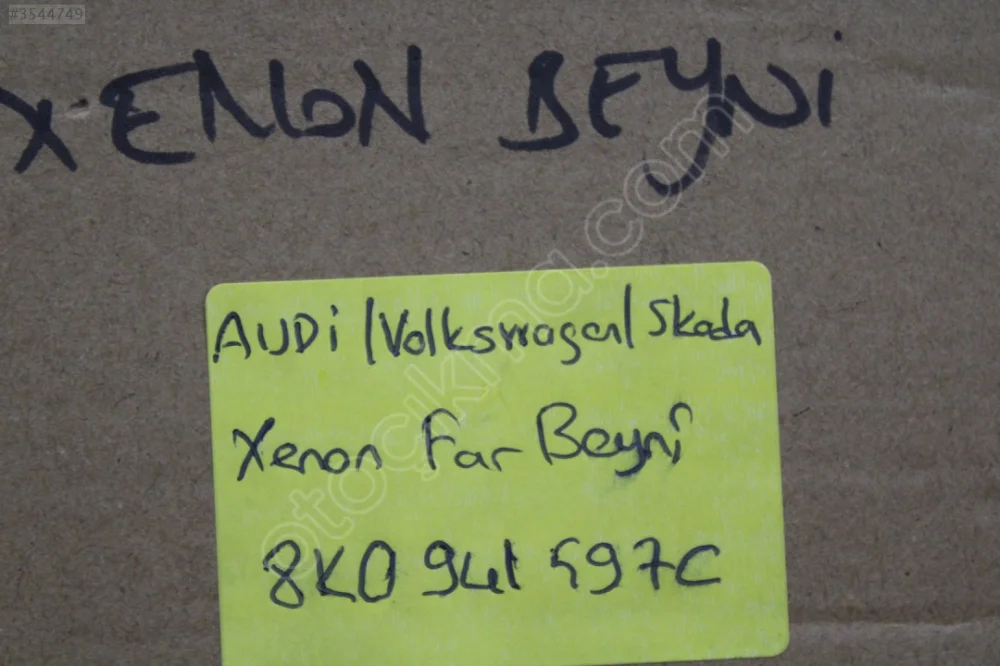 #3544749
XENON BEYNi
AUDi /Volkswagen/ Skoda
Xenon Far Beyni
8K0 941 597C
otocikma.com